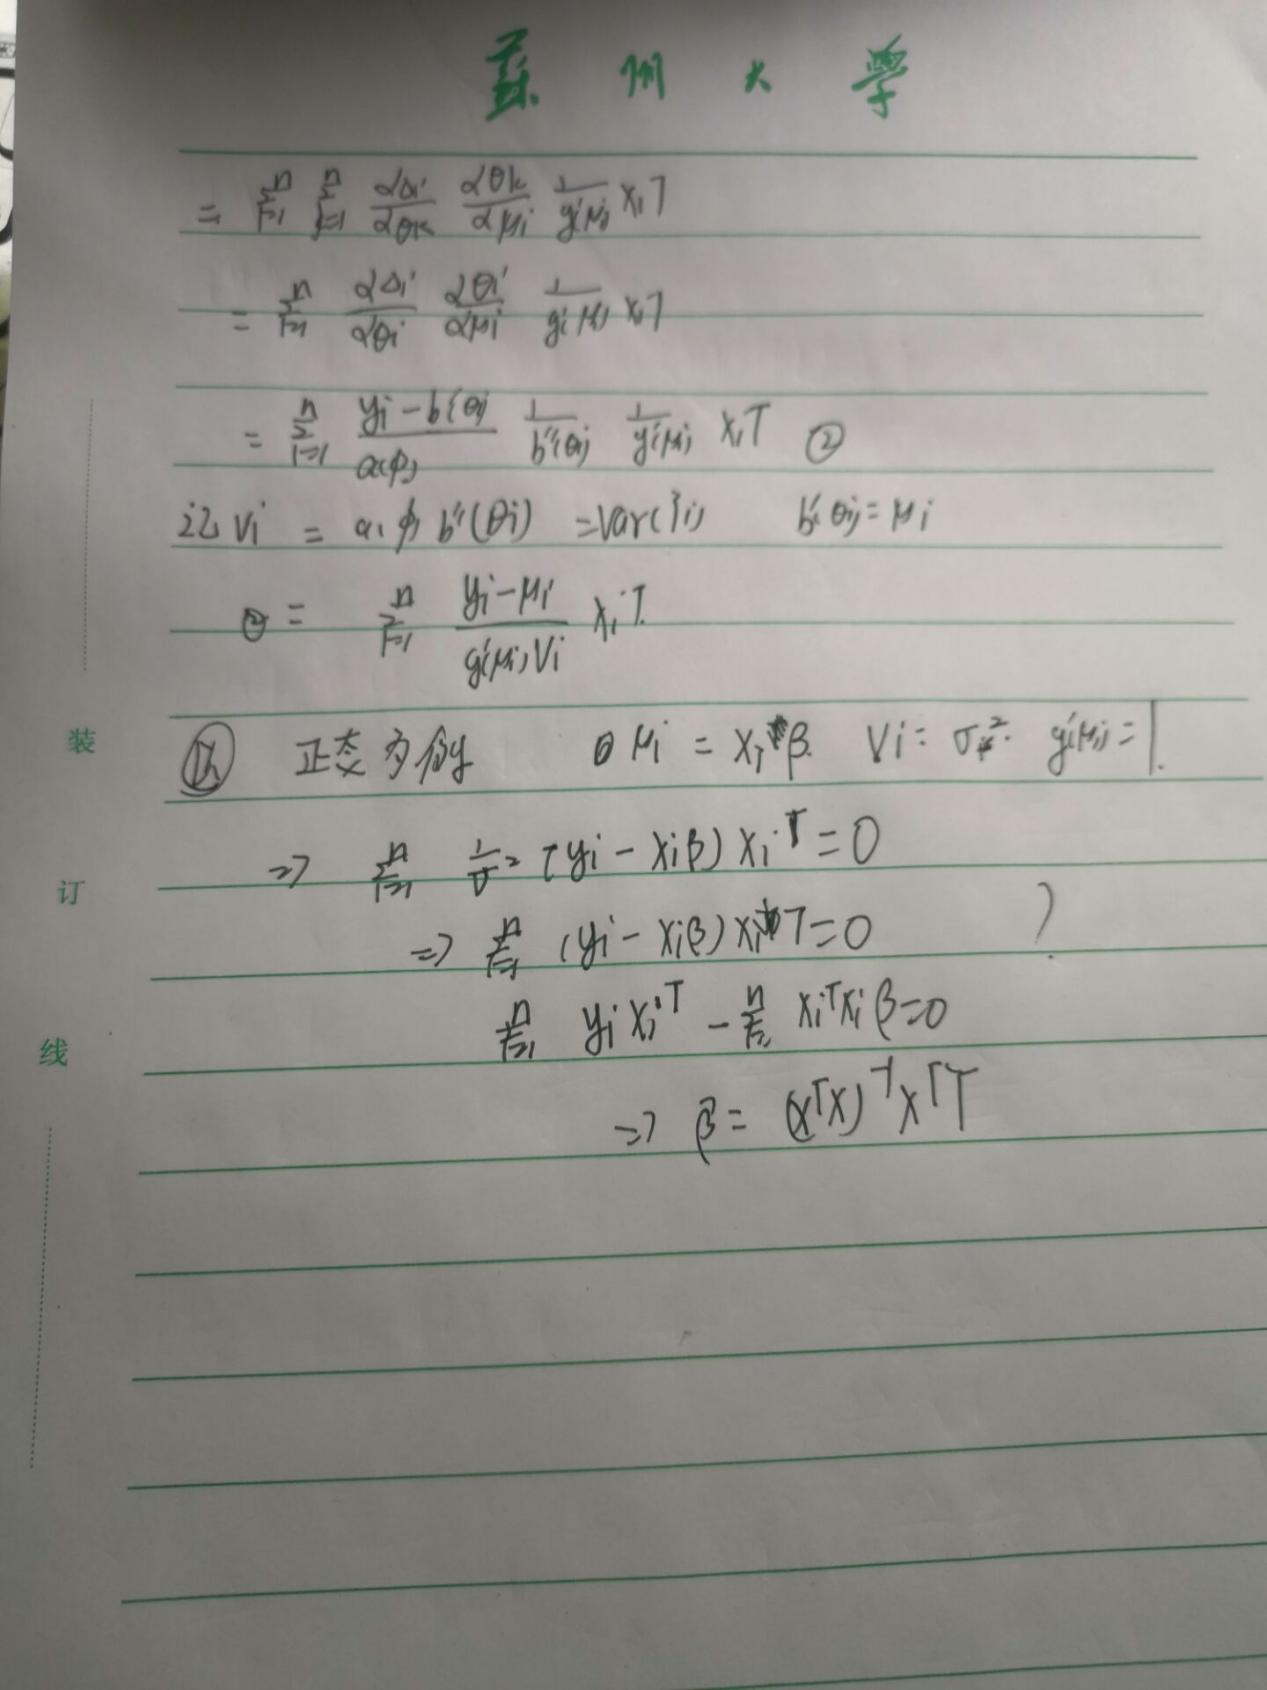 蘇州大学
= Σ_{i=1}^{n} Σ_{j=1}^{n} ∂Δi/∂θk ∂θk/∂μi 1/g'(μi) xiT
= Σ_{i=1}^{n} ∂Δi/∂θi ∂θi/∂μi 1/g'(μi) xiT
= Σ_{i=1}^{n} (yi-b'(θi))/a(φ) 1/b''(θi) 1/g'(μi) xiT ②
记 Vi = a(φ) b''(θi) = Var(Yi) b'(θi) = μi
② = Σ_{i=1}^{n} (yi-μi)/(g'(μi)Vi) xiT
以 正态为例 μi = xiβ. Vi = σ². g'(μi) = 1.
=> Σ_{i=1}^{n} 1/σ² (yi - xiβ) xiT = 0
=> Σ_{i=1}^{n} (yi - xiβ) xiT = 0 ?
Σ_{i=1}^{n} yi xiT - Σ_{i=1}^{n} xiT xi β = 0
=> β = (XTX)^{-1} XTY
装
订
线